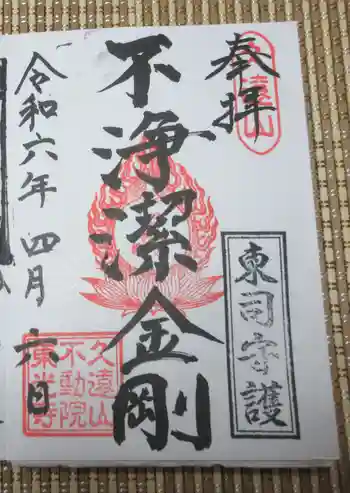 奉拝
久遠山
東司守護
不浄潔金剛
令和六年四月六日
久遠山
不動院
東光寺